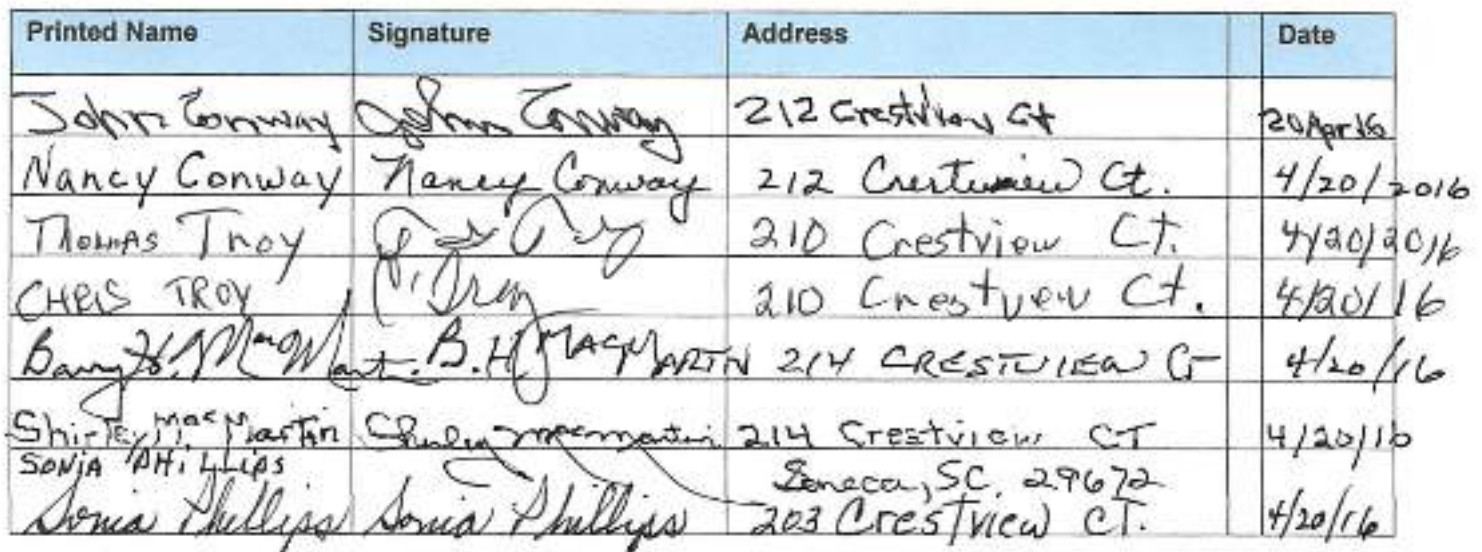 Printed Name Signature Address Date
John Conway John Conway 212 Crestview Ct 20Apr16
Nancy Conway Nancy Conway 212 Crestview Ct. 4/20/2016
Thomas Troy 210 Crestview Ct. 4/20/2016
CHRIS TROY C. Troy 210 Crestview Ct. 4/20/16
Barry H. MacMart. B. H. MACMARTIN 214 CRESTVIEW CT 4/20/16
Shirley MacMartin Shirley MacMartin 214 Crestview CT 4/20/16
SONJA PHILLIPS Seneca, SC. 29672
Sonia Phillips Sonia Phillips 203 Crestview CT. 4/20/16